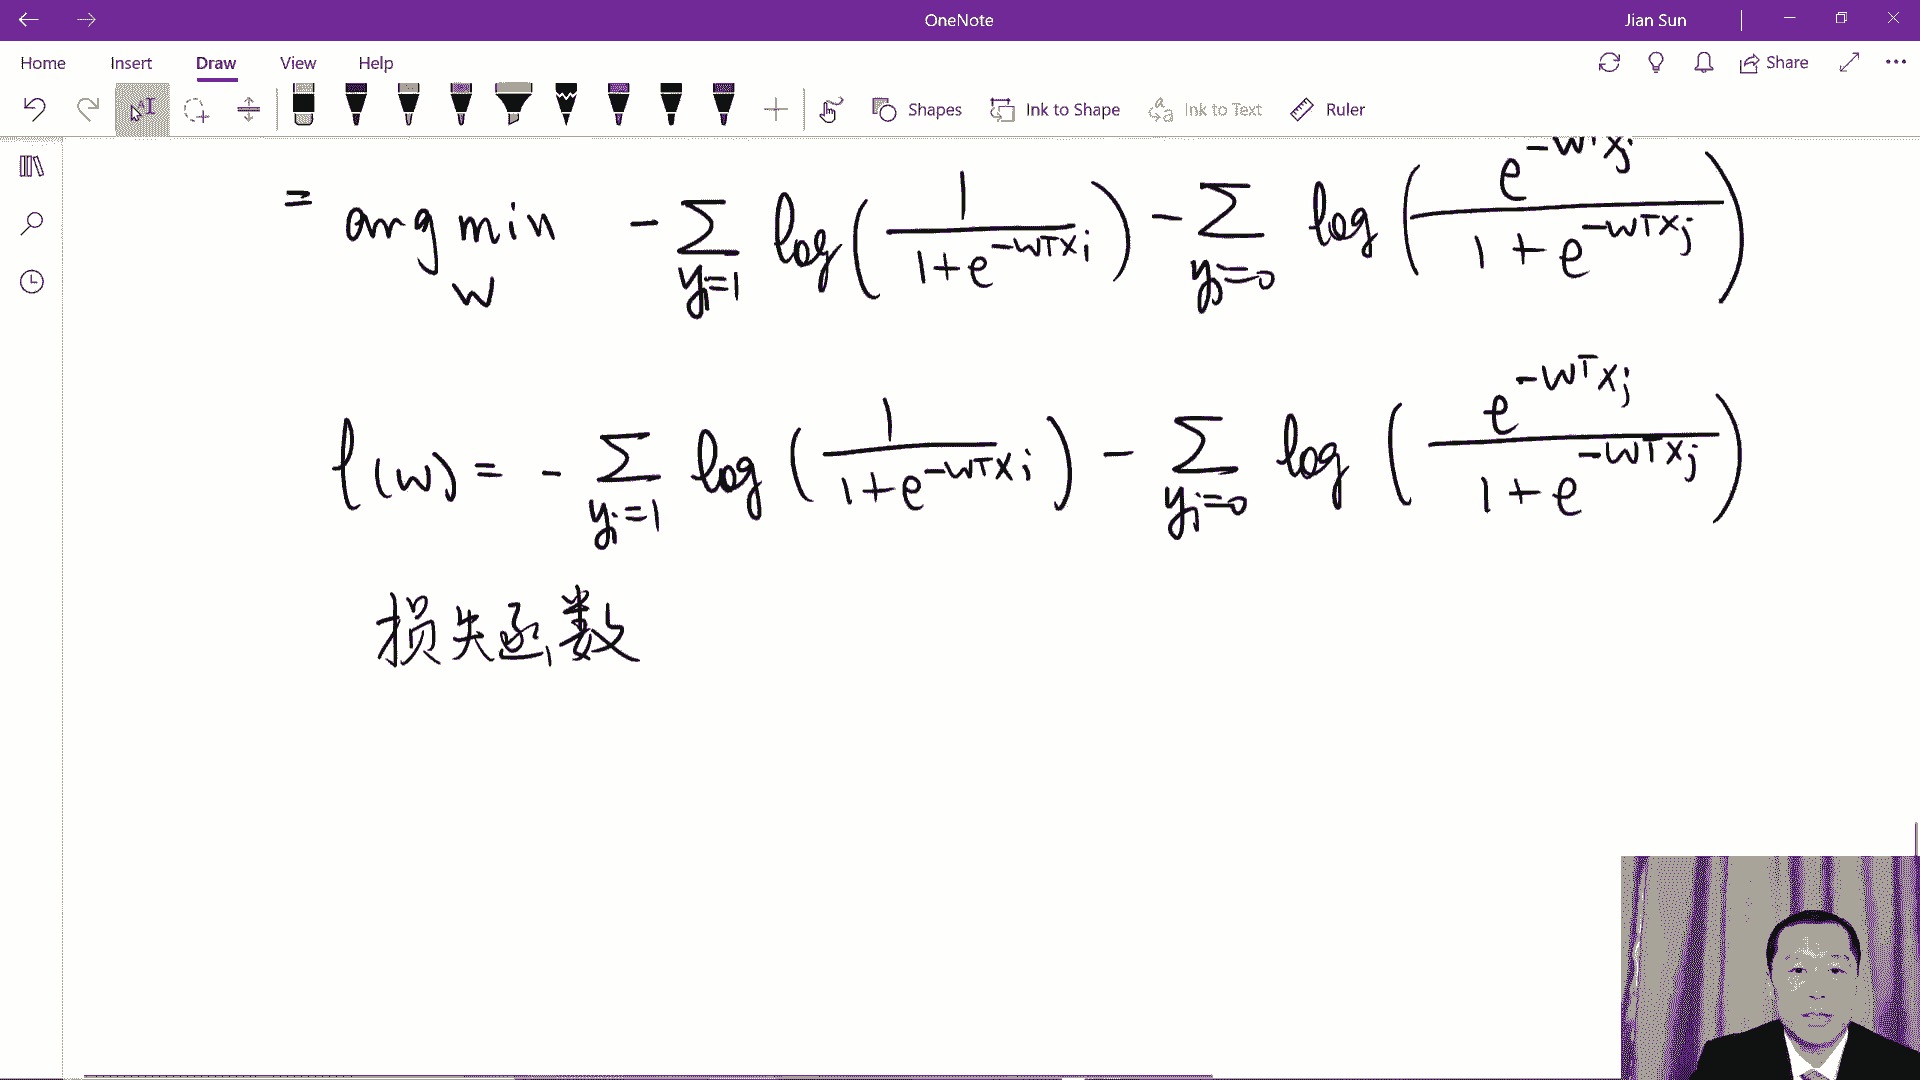 OneNote
Jian Sun
Home Insert Draw View Help
Share
Shapes Ink to Shape Ink to Text Ruler
= arg min_w - ∑_{y_i=1} log(1/(1+e^{-w^T x_i})) - ∑_{y_j=0} log(e^{-w^T x_j}/(1+e^{-w^T x_j}))
l(w) = - ∑_{y_i=1} log(1/(1+e^{-w^T x_i})) - ∑_{y_j=0} log(e^{-w^T x_j}/(1+e^{-w^T x_j}))
损失函数